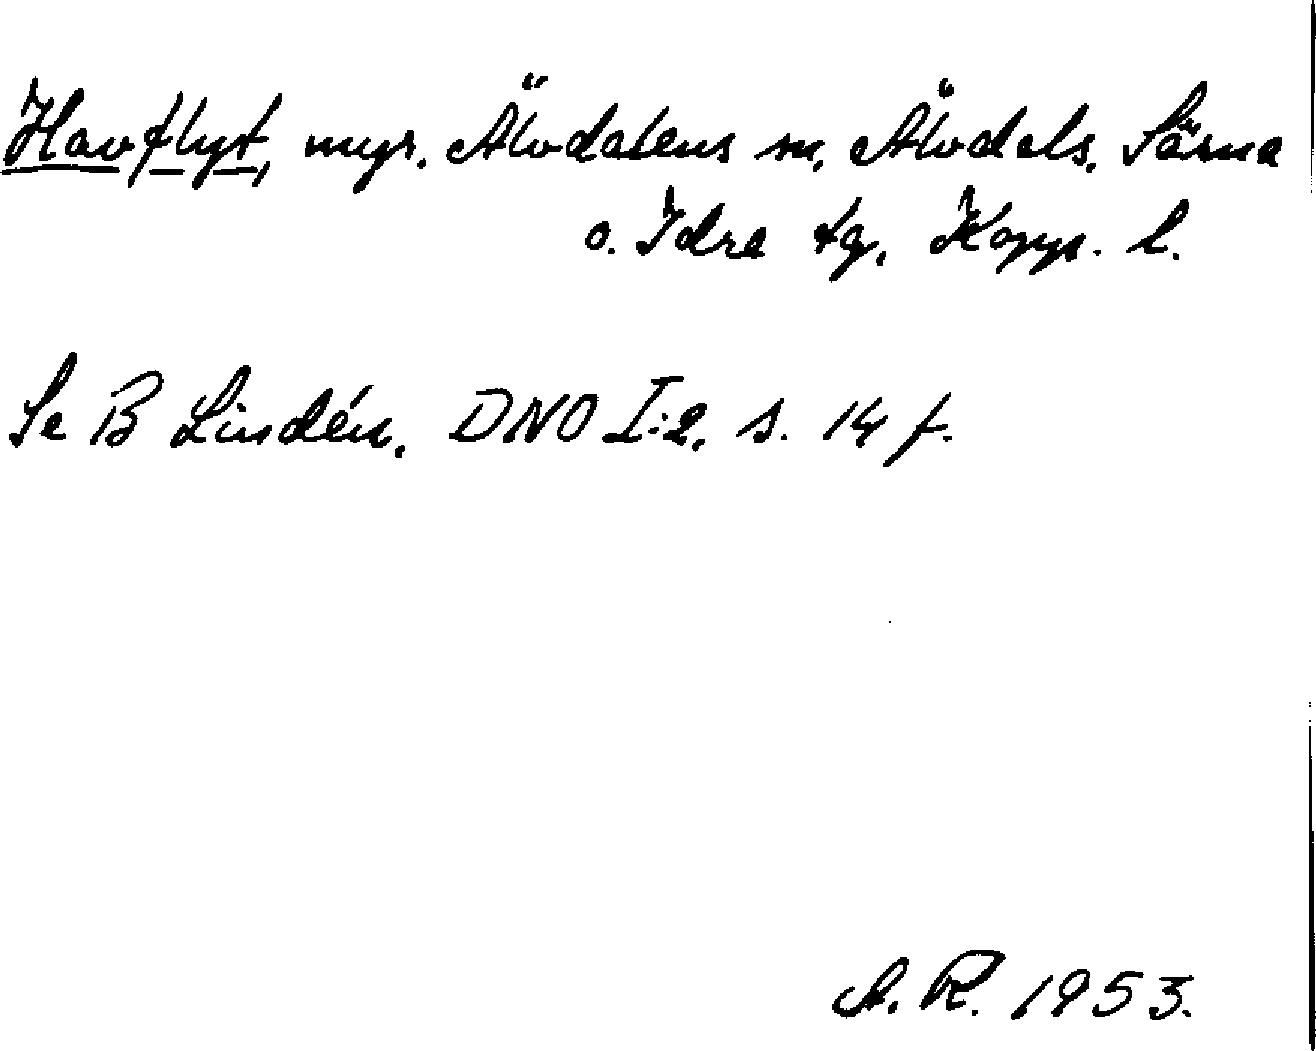 Havflyt, myr, Älvdalens sn, Älvdals, Särna
o. Idre tg, Kopp. l.
Se B Lindén, DNO I:2, s. 14 f.
A. R. 1953.